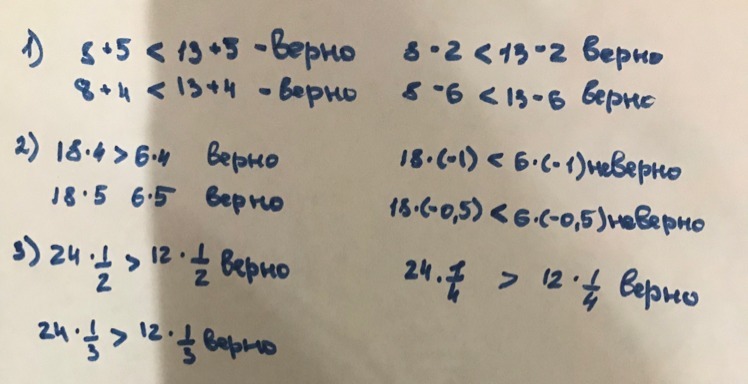 1) 8+5 < 13+5 - верно 8-2 < 13-2 верно
8+4 < 13+4 - верно 8-6 < 13-6 верно
2) 18·4 > 6·4 верно 18·(-1) < 6·(-1) неверно
18·5 6·5 верно 18·(-0,5) < 6·(-0,5) неверно
3) 24·1/2 > 12·1/2 верно 24·1/4 > 12·1/4 верно
24·1/3 > 12·1/3 верно